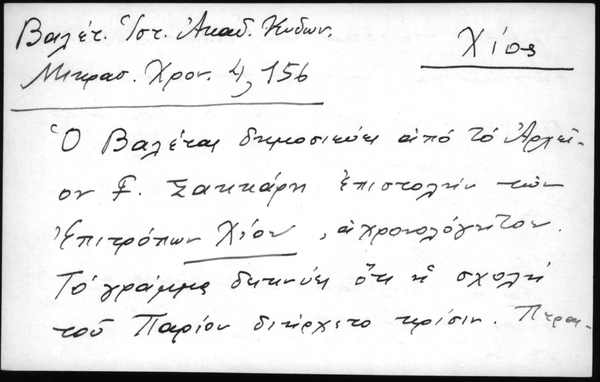 Βαλέτ. Ἱστ. Ἀκαδ. Κυδων.
Χίος
Μικρασ. Χρον. 4, 156
Ὁ Βαλέτας δημοσιεύει ἀπό τό Ἀρχεῖ-
ον Γ. Σακκάρη ἐπιστολήν τῶν
Ἐπιτρόπων Χίου, ἀχρονολόγητον.
Τό γράμμα δεικνύει ὅτι ἡ σχολή
τοῦ Παρίου διήρχετο κρίσιν.